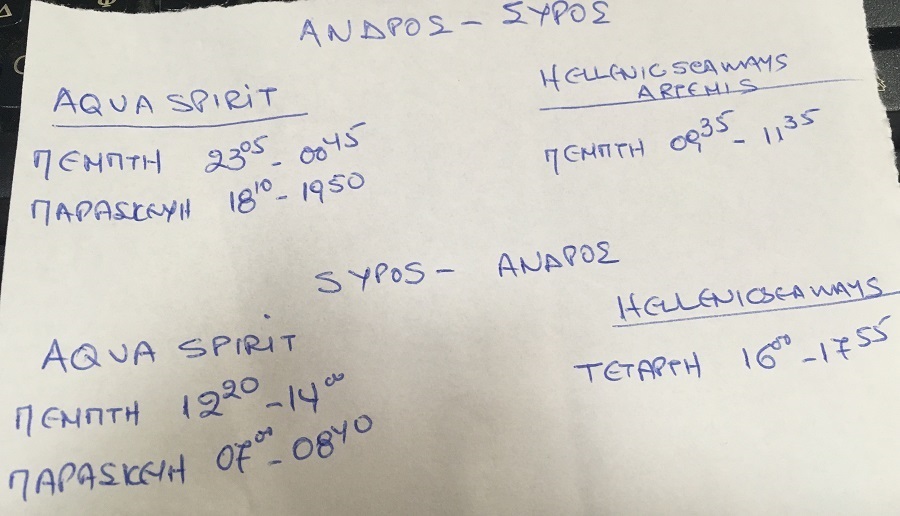 ΑΝΔΡΟΣ - ΣΥΡΟΣ
AQUA SPIRIT
ΠΕΜΠΤΗ 23⁰⁵ - 00⁴⁵
ΠΑΡΑΣΚΕΥΗ 18¹⁰ - 19⁵⁰
HELLENIC SEAWAYS
ΑΡΤΕΜΙΣ
ΠΕΜΠΤΗ 09³⁵ - 11³⁵
SΥΡΟS - ΑΝΔΡΟΣ
AQUA SPIRIT
ΠΕΜΠΤΗ 12²⁰ - 14⁰⁰
ΠΑΡΑΣΚΕΥΗ 07⁰⁰ - 08⁴⁰
HELLENIC SEAWAYS
ΤΕΤΑΡΤΗ 16⁰⁰ - 17⁵⁵